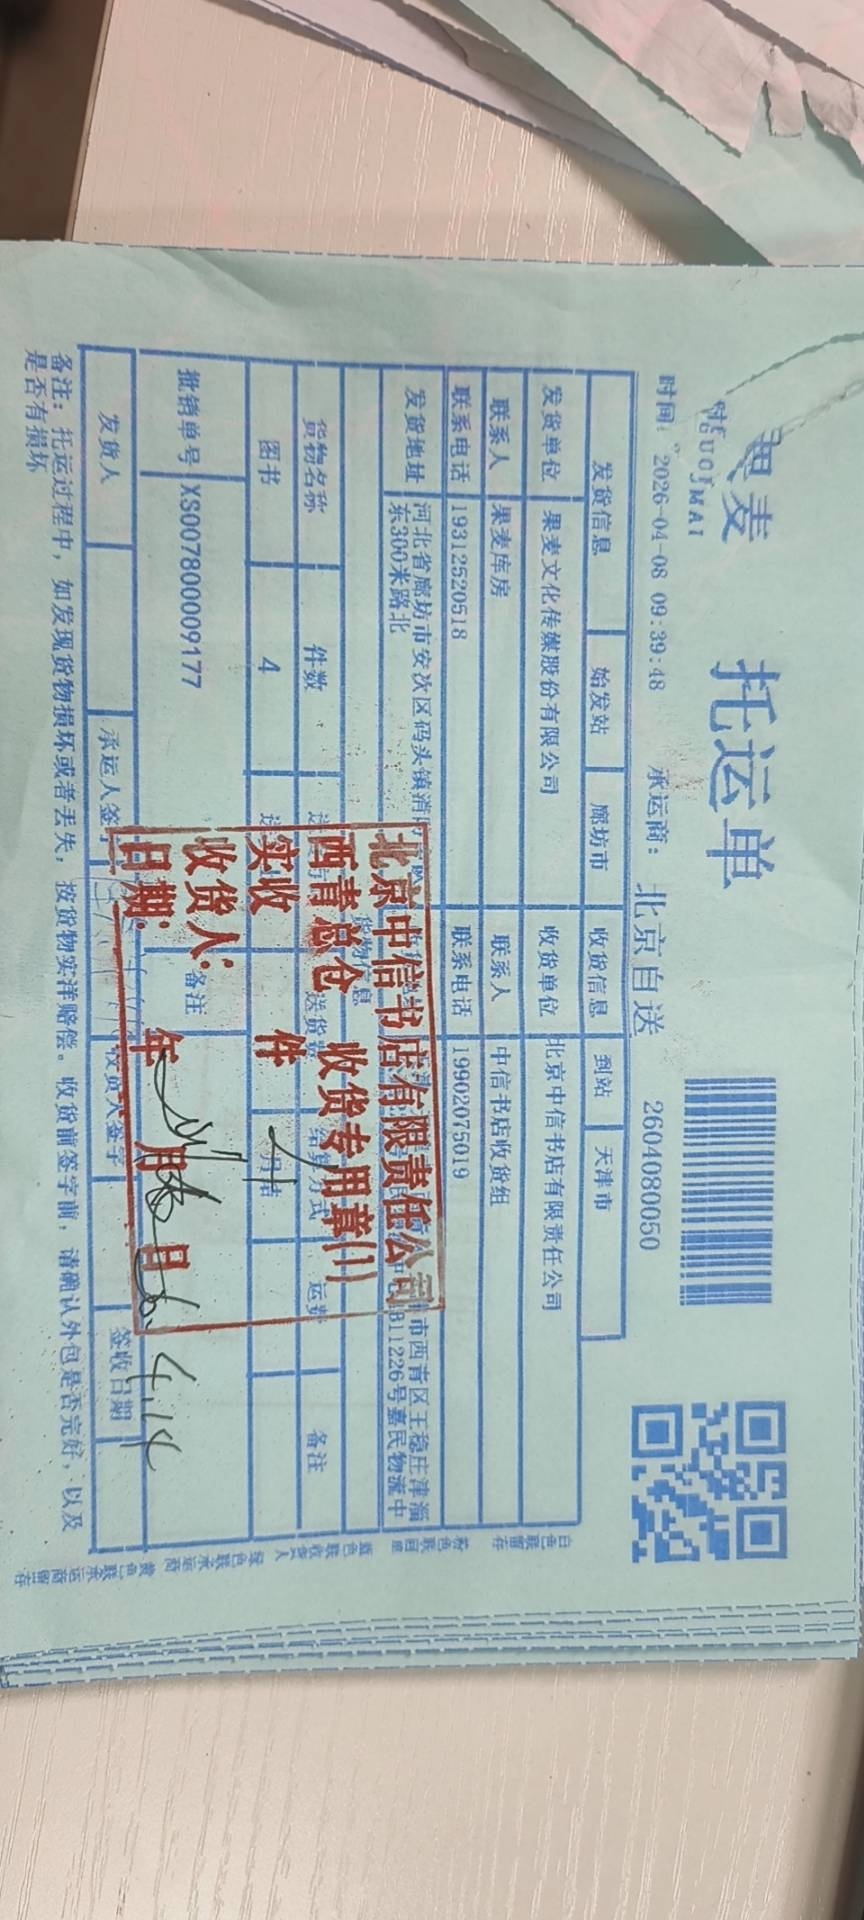 果麦
GUOJMAI
托运单
时间: 2026-04-08 09:39:48 承运商: 北京自送 2604080050
发货信息 始发站 廊坊市 收货信息 到站 天津市
发货单位 果麦文化传媒股份有限公司 收货单位 北京中信书店有限责任公司
联系人 果麦库房 联系人 中信书店收货组
联系电话 19312520518 联系电话 19902075019
发货地址 河北省廊坊市安次区码头镇消防
东300米路北
市西青区王稳庄津淄
1226号嘉民物流中
货物信息
货物名称 件数 送货费 结算方式 运费 备注
图书 4 月结
批销单号 XS007800009177 备注
发货人 承运人签字 收货人签字 签收日期
北京中信书店有限责任公司
西青总仓 收货专用章(1)
实收 件
收货人:
日期: 年 月 日
4.14
备注: 托运过程中, 如发现货物损坏或者丢失, 按货物实洋赔偿。收货前签字前, 请确认外包是否完好, 以及
是否有损坏
白色联留存
粉色联回单
蓝色联收货人
绿色联承运商
黄色联承运商留存